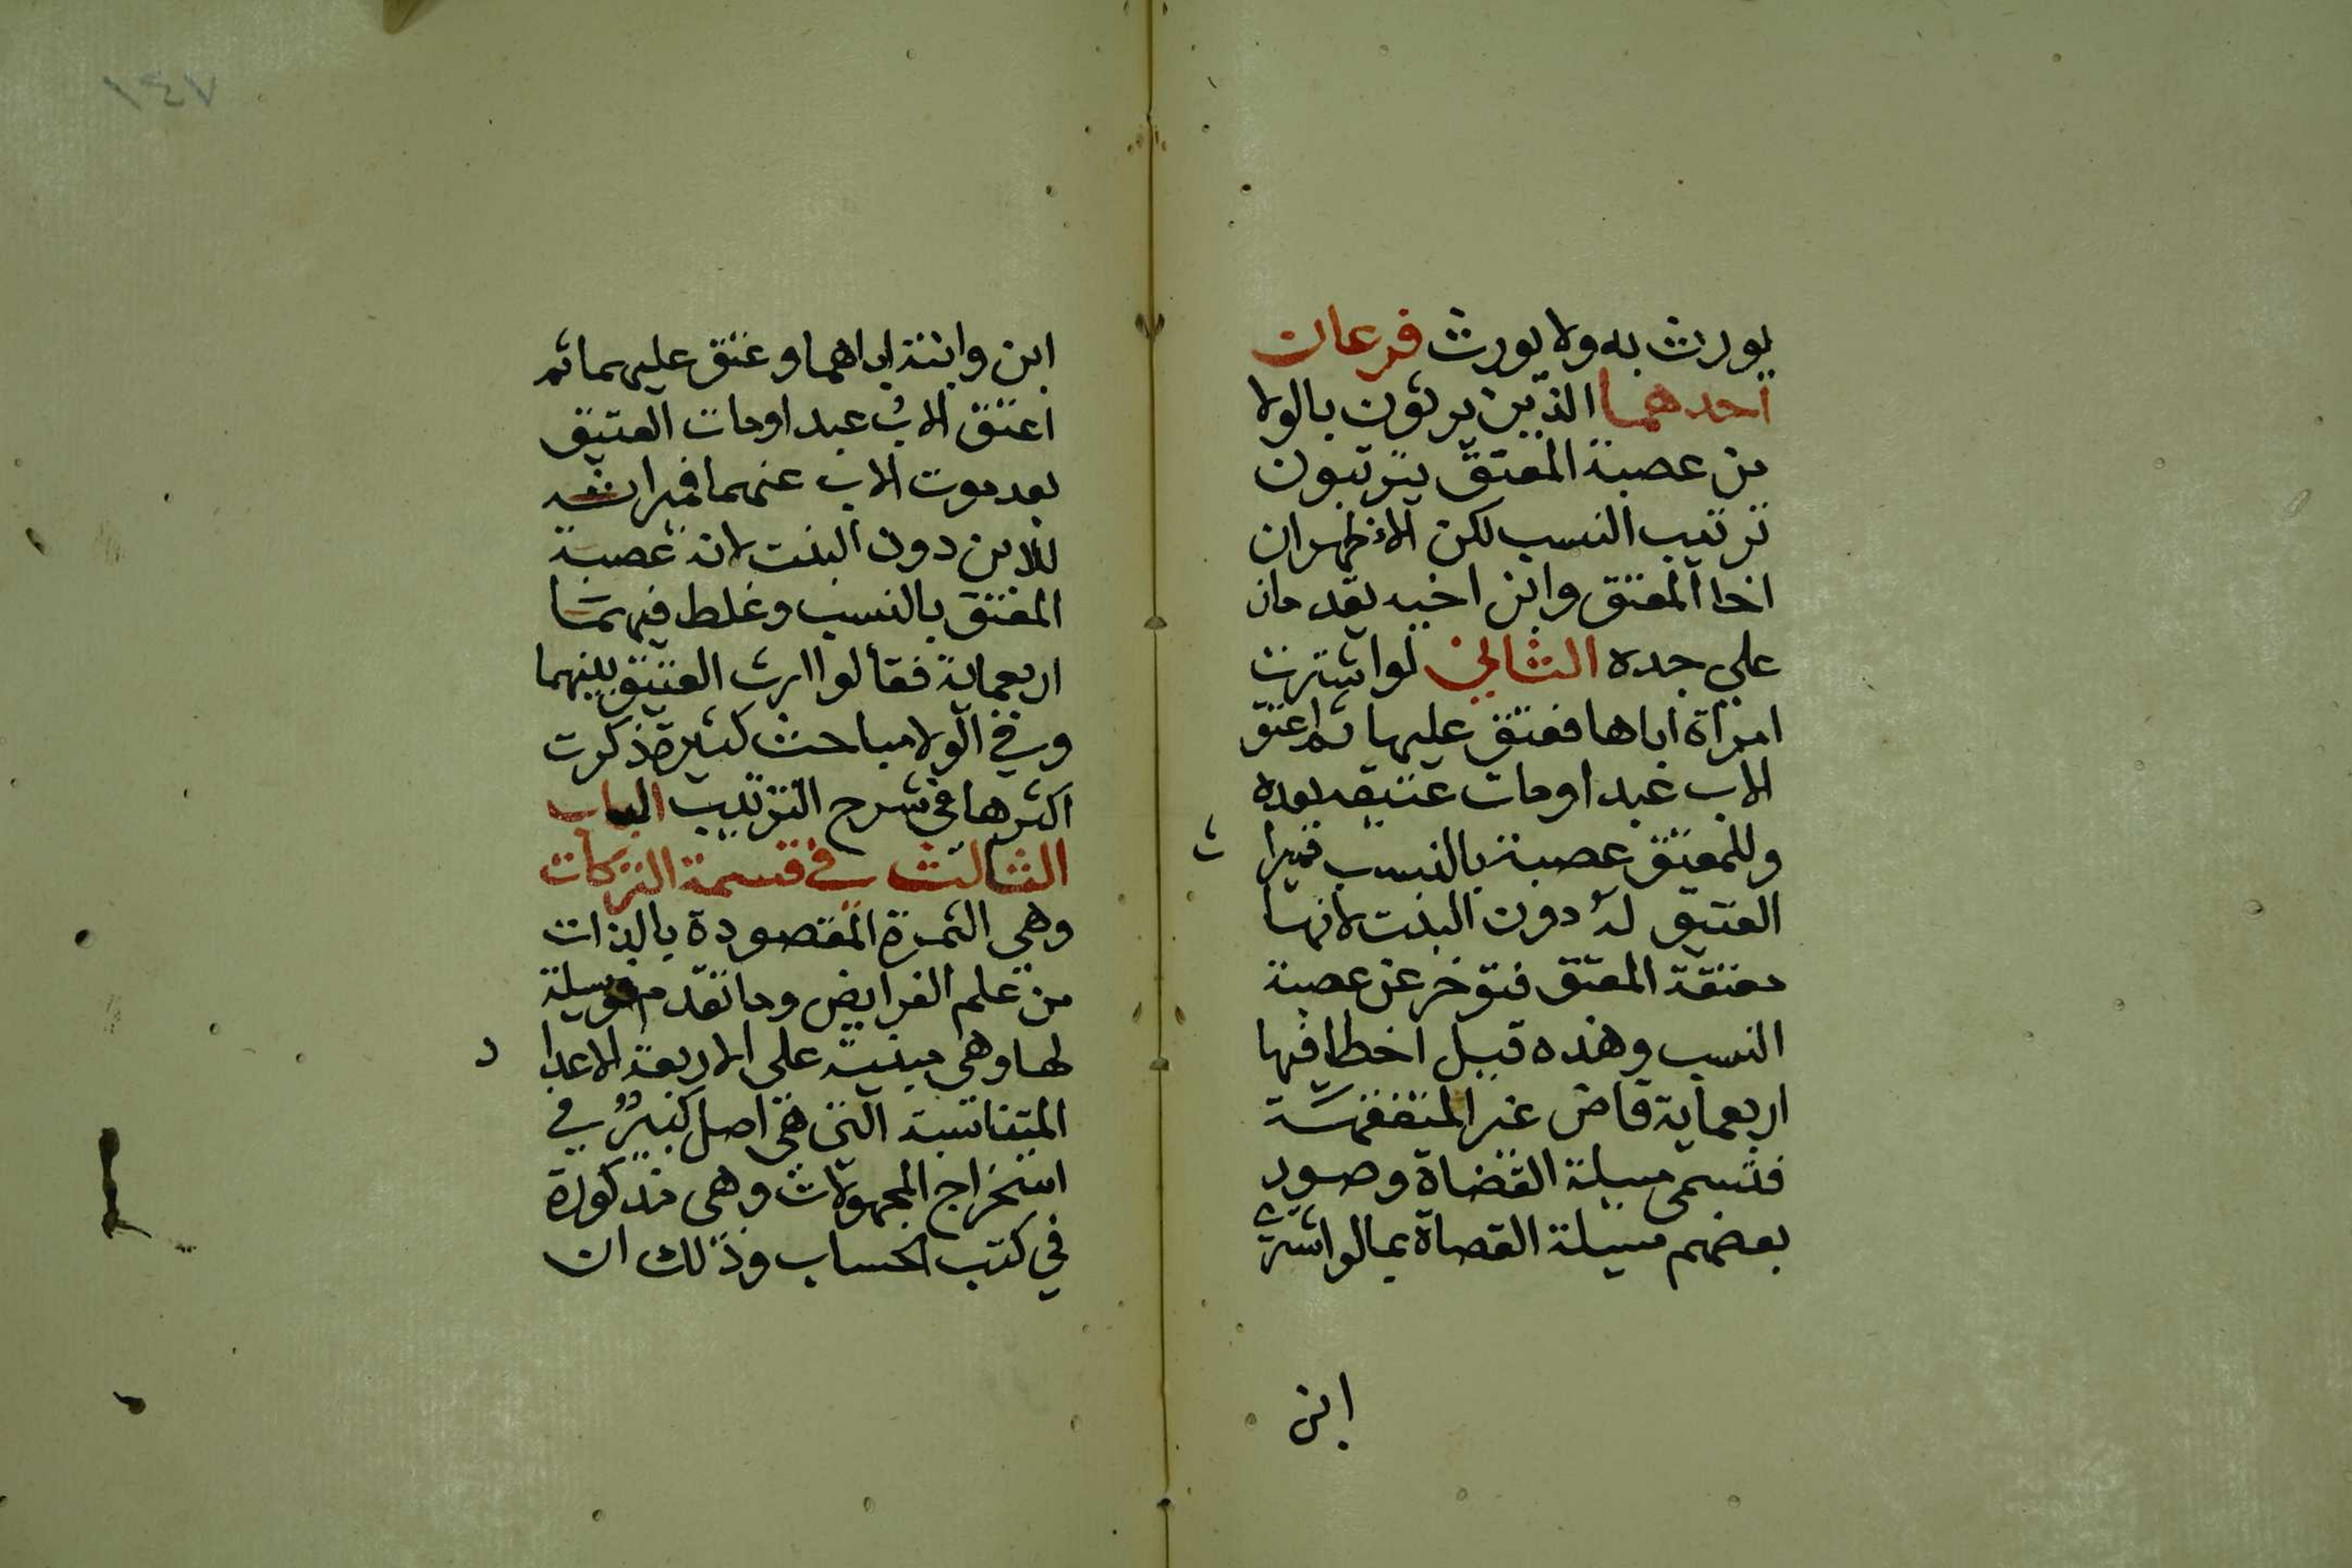 يورث به ولا يورث فرعان
احدهما الذين يرثون بالولا
من عصبة المعتق يترتبون
ترتيب النسب لكن الاظهر ان
اخا المعتق وابن اخيه يقدمان
على جده الثاني لو اشترت
امراة اباها فعتق عليها ثم اعتق
الاب عبدا ومات عتيقه بعده
وللمعتق عصبة بالنسب فميراث
العتيق له دون البنت لانها
معتقة المعتق فتوخر عن عصبة
النسب وهذه قيل اخطا فيها
اربعماية قاض غير المتفقهة
فتسمى مسيلة القضاة وصور
بعضهم مسيلة القضاة بما لو اشترى
ابن
ابن وابنة اباهما وعتق عليهما ثم
اعتق الاب عبدا ومات العتيق
بعد موت الاب عنهما فميراثه
للابن دون البنت لانه عصبة
المعتق بالنسب وغلط فيهما
اربعماية فقالوا ارث العتيق بينهما
وفي الولا مباحث كثيرة ذكرت
اكثرها في شرح الترتيب الباب
الثالث في قسمة التركات
وهي الثمرة المقصودة بالذات
من علم الفرايض وما تقدم وسيلة
لها وهي مبنية على الاربعة الاعداد
المتناسبة التي هي اصل كبير في
استخراج المجهولات وهي مذكورة
في كتب الحساب وذلك ان